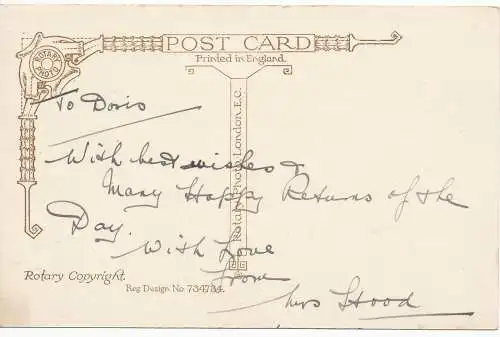 POST CARD
Printed in England.
ROTARY PHOTO
To Doris
With best wishes &
Many Happy Returns of the
Day.
With Love
from
Mrs Hood
Rotary Photo, London, E.C.
Rotary Copyright.
Reg Design No 734734.